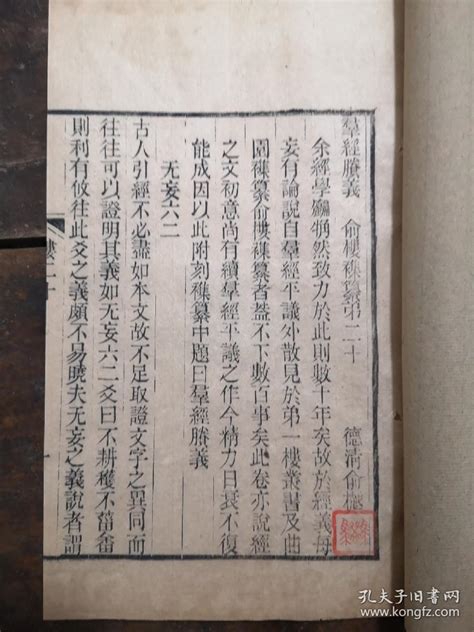 羣經賸義　俞樓襍纂弟二十　德清俞樾
余經學麤觕然致力於此則數十年矣故於經義毋
妄有論說自羣經平議外散見於弟一樓叢書及曲
園襍纂俞樓襍纂者葢不下數百事矣此卷亦說經
之文初意尚有續羣經平議之作今精力日衰不復
能成因以此附刻襍纂中題曰羣經賸義
无妄六二
古人引經不必盡如本文故不足取證文字之異同而
往往可以證明其義如无妄六二爻曰不耕穫不菑畬
則利有攸往此爻之義頗不易曉夫无妄之義說者謂
樓二十
孔夫子旧书网
www.kongfz.com